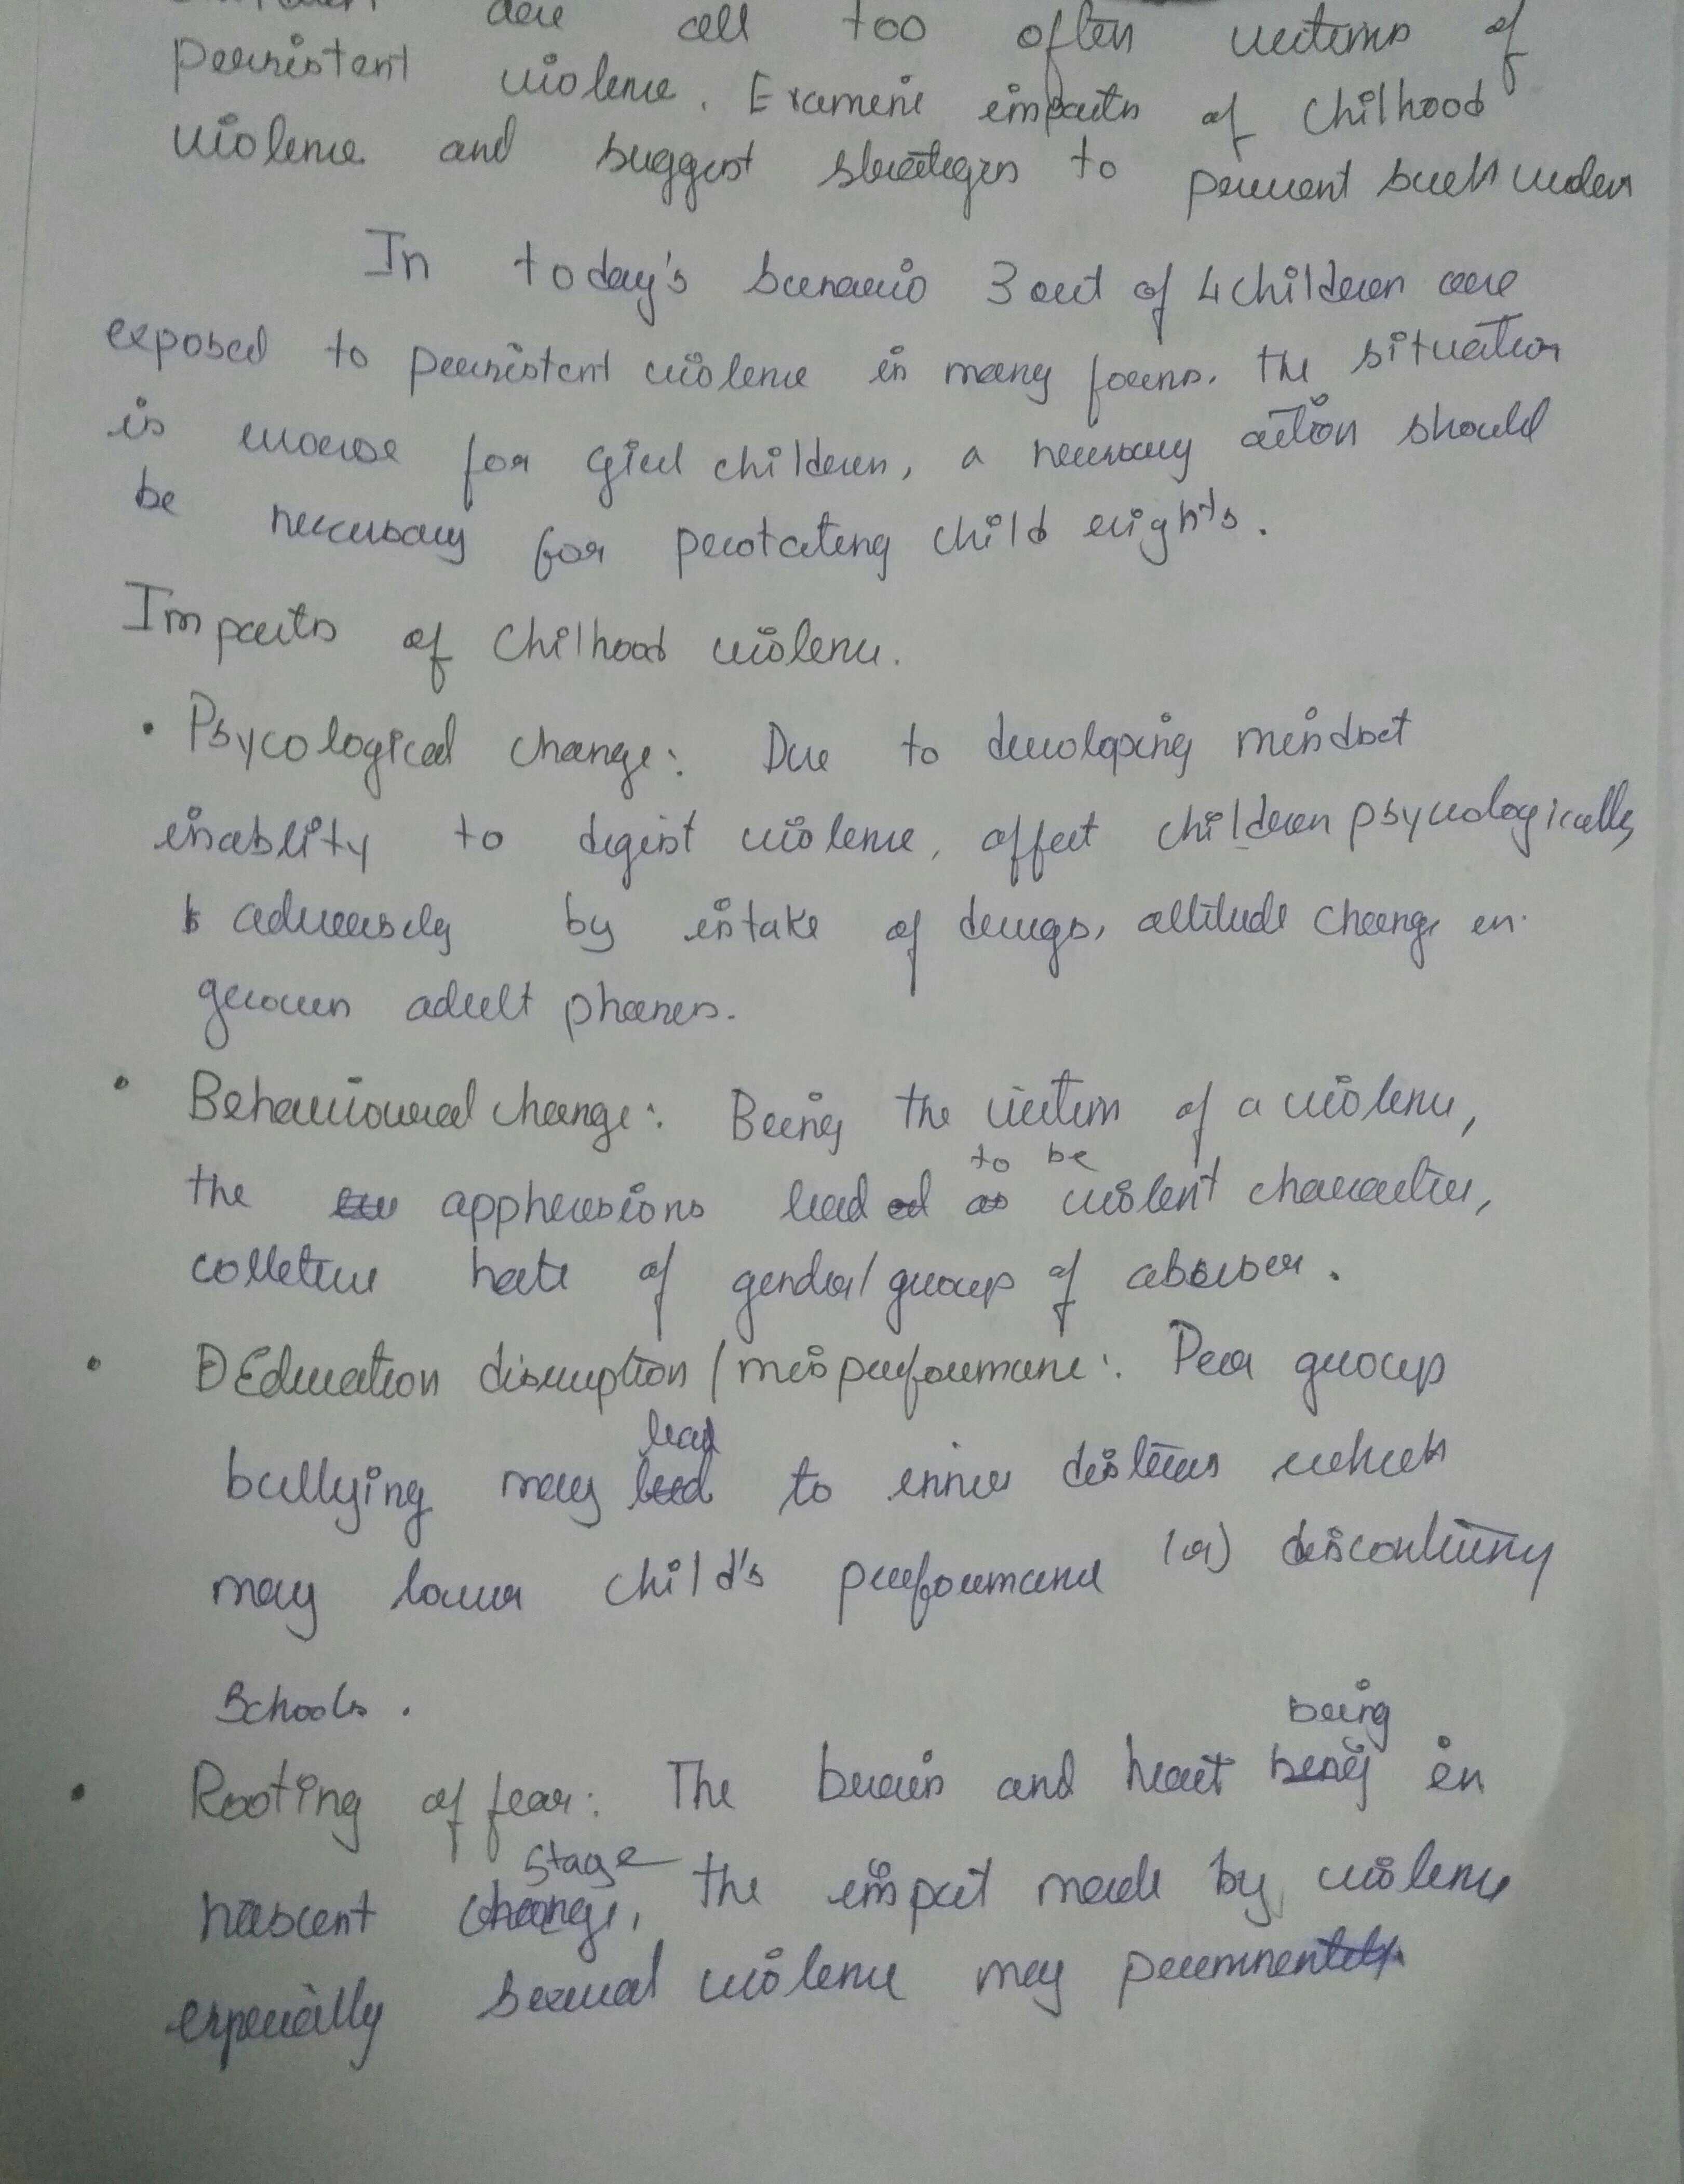 are all too often victims of
persistent violence. Examine impacts of Chilhood
violence and suggest strategies to prevent such
In today's scenario 3 out of 4 children are
exposed to persistent violence in many forms. the situation
is worse for girl children, a necessary action should
be neccessary for protating child rights.
Impacts of Chilhood violence.
• Psycological change: Due to developing mindset
inablity to digist violence, affect children psycologically
adversely by intake of drugs, attitude change in
grown adult phases.
• Behavioural change: Being the victim of a violence,
to be
the apphersions lead violent character,
colletive hate of gender/group of abuser.
• Education disruption / misperformance: Peer group
lead
bullying may to inner distress which
may lower child's performance (or) discontinuy
Schools.
being
• Rooting of fear: The brain and heart in
stage
nascent change, the impact made by violence
especially sexual violence may permnent